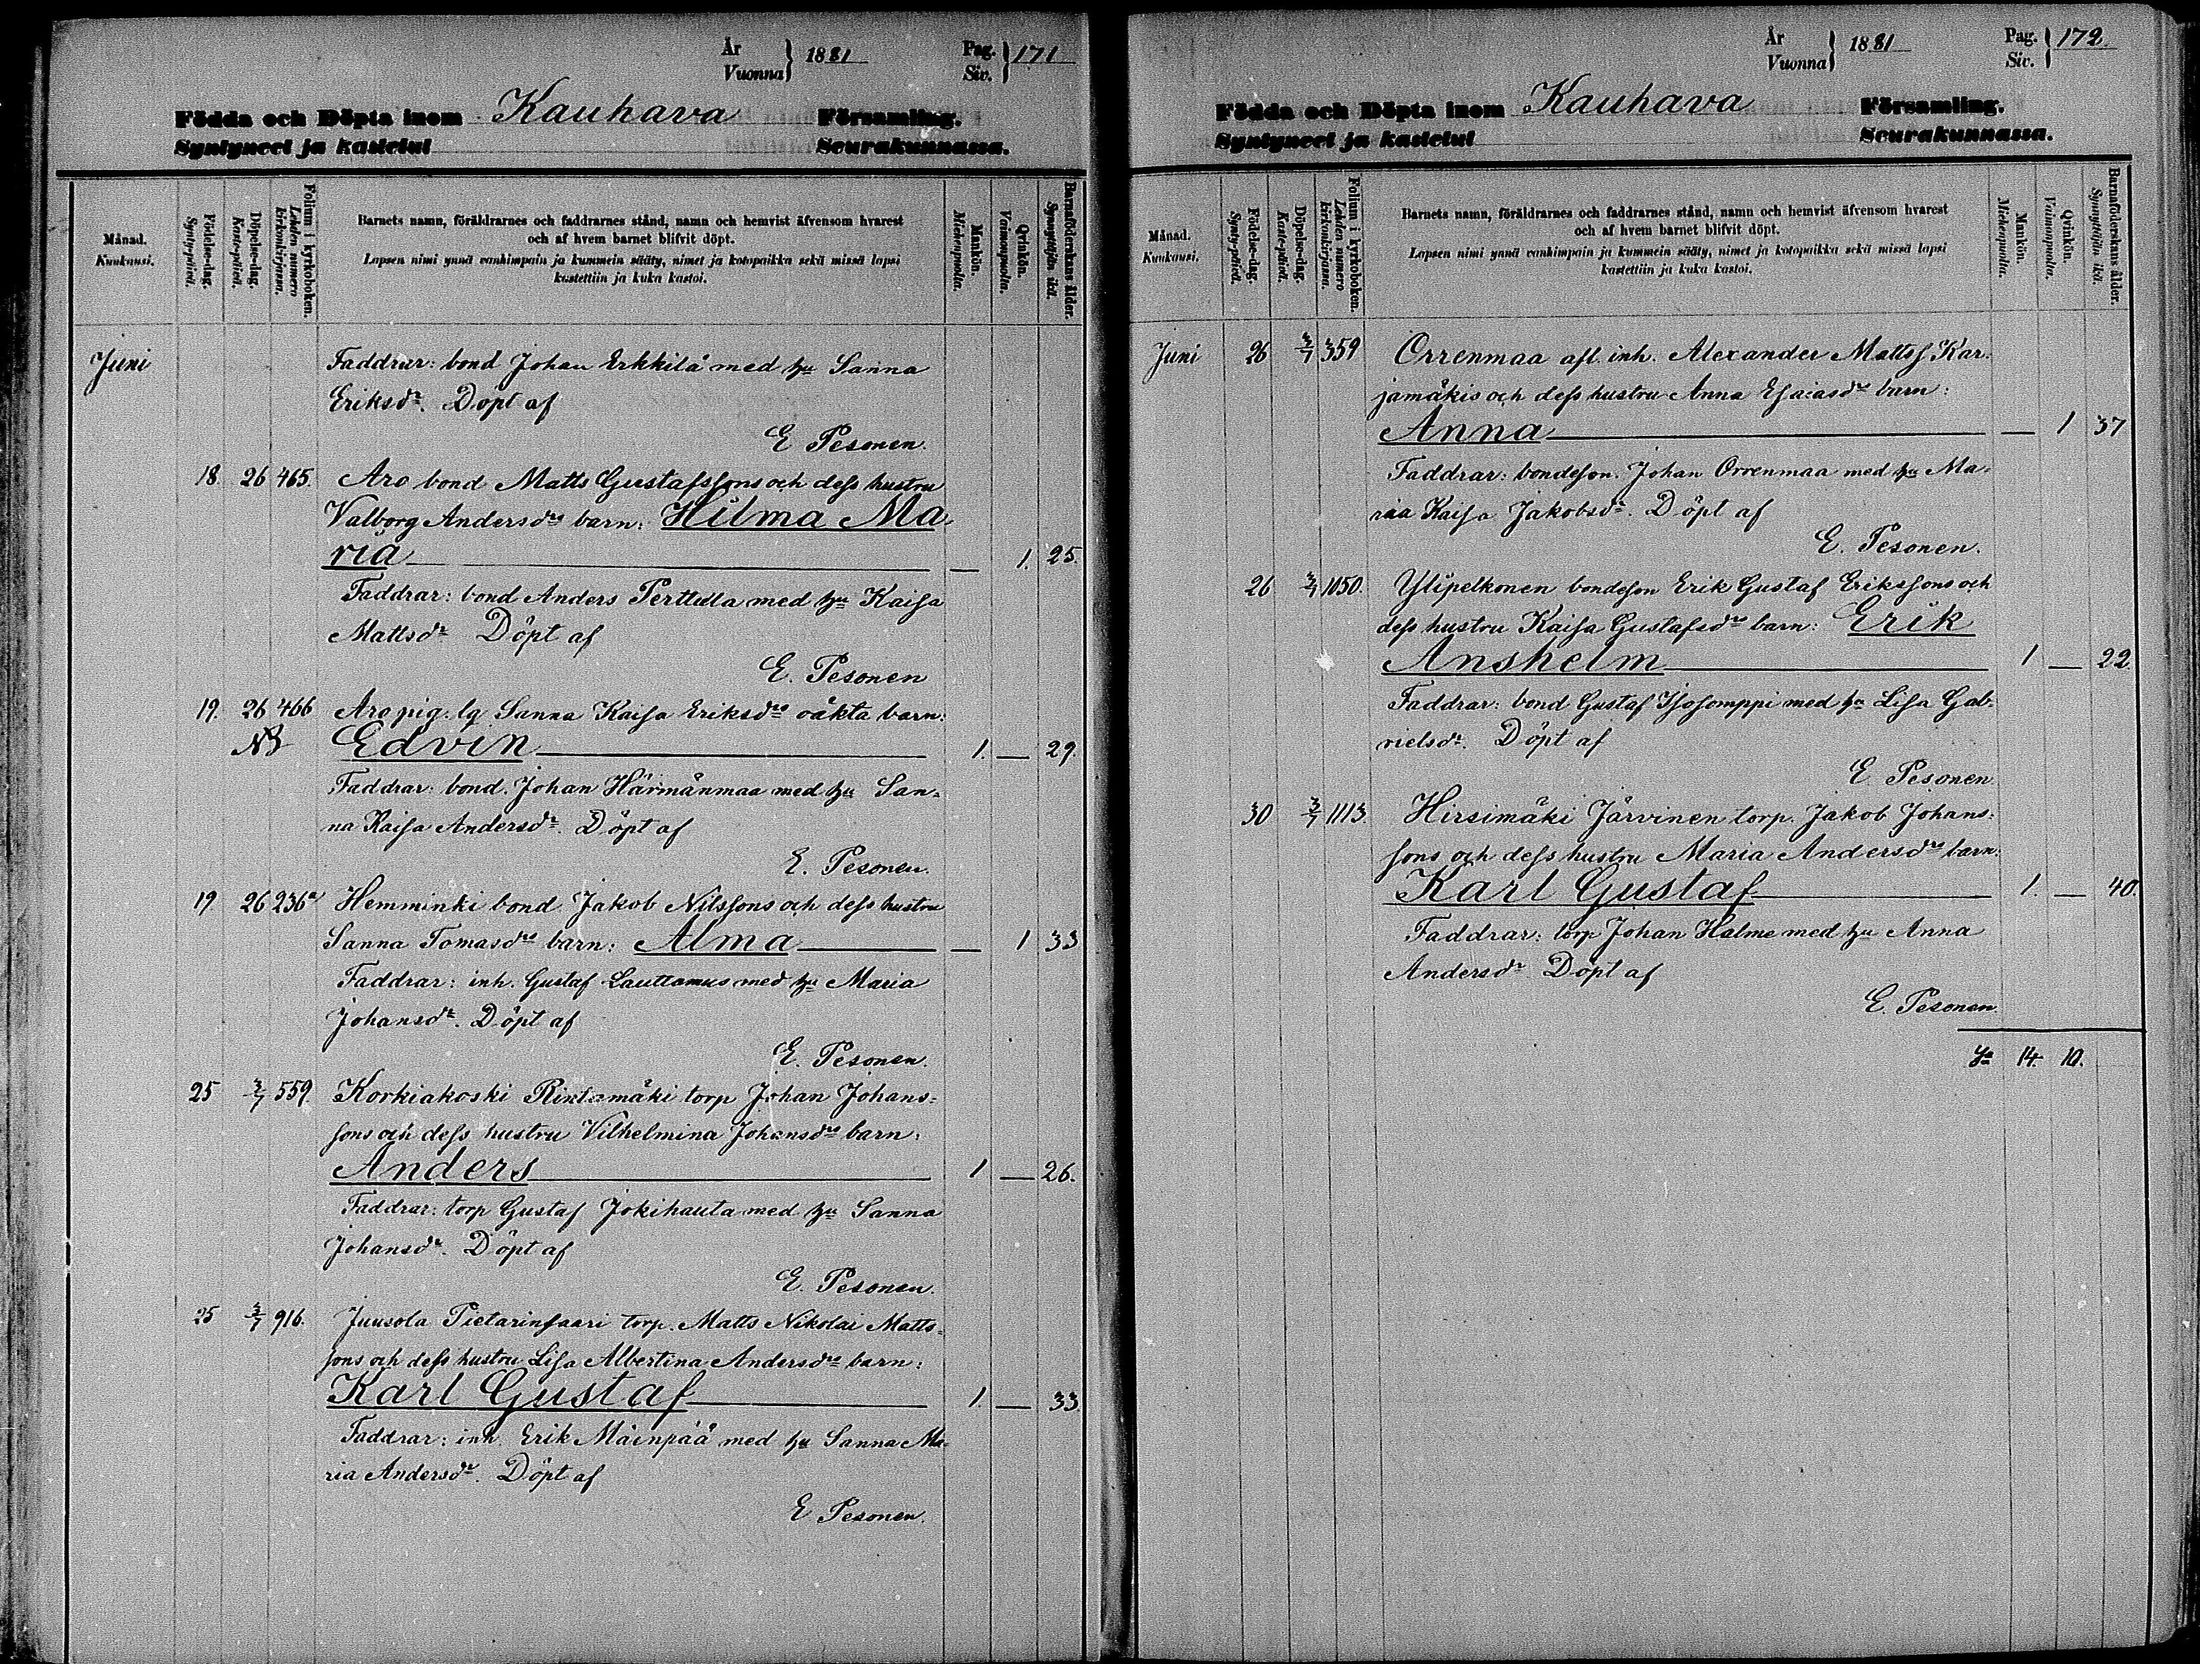 År
Vuonna } 1881
Pag.
Siv. } 171
Födda och Döpta inom Kauhava Församling.
Syntyneet ja kastetut Seurakunnassa.
Månad.
Kuukausi.
Födelse-dag.
Synty-päivä.
Döpelse-dag.
Kaste-päivä.
Folium i kyrkoboken.
Lehden numero
kirkonkirjassa.
Barnets namn, föräldrarnes och faddrarnes stånd, namn och hemvist äfvensom hvarest
och af hvem barnet blifvit döpt.
Lapsen nimi ynnä vanhimpain ja kummein sääty, nimet ja kotopaikka sekä missä lapsi
kastettiin ja kuka kastoi.
Mankön.
Miehenpuolia.
Qvinkön.
Vaimonpuolia.
Barnaföderskans ålder.
Synnyttäjän ikä.
Juni Faddrar: bond Johan Erkkilä med hu Sanna
Eriksdr. Döpt af
E Pesonen.
18. 26 465. Aro bond Matts Gustafssons och dess hustru
Valborg Andersdrs barn: Hilma Ma
ria — 1. 25.
Faddrar: bond Anders Perttula med hu Kaisa
Mattsdr Döpt af
E. Pesonen
19. 26 466 Aro pig. lq Sanna Kaisa Eriksdrs oäkta barn:
NB Edvin 1. — 29.
Faddrar: bond. Johan Härmänmaa med hu San=
na Kaisa Andersdr. Döpt af
E. Pesonen.
19 26 236a Hemminki bond Jakob Nilssons och dess hustru
Sanna Tomasdrs barn: Alma — 1 33
Faddrar: inh. Gustaf Lauttamus med hu Maria
Johansdr. Döpt af
E. Pesonen.
25 3/7 559. Korkiakoski Rintamäki torp Johan Johans=
sons och dess hustru Vilhelmina Johansdrs barn:
Anders 1 — 26.
Faddrar: torp Gustaf Jokihauta med hu Sanna
Johansdr. Döpt af
E. Pesonen.
25 3/7 916. Juusola Pietarinsaari torp. Matts Nikolai Matts=
sons och dess hustru Lisa Albertina Andersdrs barn:
Karl Gustaf 1. — 33
Faddrar: inh. Erik Mäenpää med hu Sanna Ma=
ria Andersdr. Döpt af
E Pesonen.
År
Vuonna } 1881
Pag.
Siv. } 172.
Födda och Döpta inom Kauhava Församling.
Syntyneet ja kastetut Seurakunnassa.
Månad.
Kuukausi.
Födelse-dag.
Synty-päivä.
Döpelse-dag.
Kaste-päivä.
Folium i kyrkoboken.
Lehden numero
kirkonkirjassa.
Barnets namn, föräldrarnes och faddrarnes stånd, namn och hemvist äfvensom hvarest
och af hvem barnet blifvit döpt.
Lapsen nimi ynnä vanhimpain ja kummein sääty, nimet ja kotopaikka sekä missä lapsi
kastettiin ja kuka kastoi.
Mankön.
Miehenpuolia.
Qvinkön.
Vaimonpuolia.
Barnaföderskans ålder.
Synnyttäjän ikä.
Juni 26 3/7 359 Orrenmaa afl. inh. Alexander Mattss. Kar=
jamäkis och dess hustru Anna Esaiasdrs barn:
Anna — 1 37
Faddrar: bondeson. Johan Orrenmaa med hu Ma=
ria Kaisa Jakobsdr. Döpt af
E. Pesonen.
26 3/7 1050. Ylipelkonen bondeson Erik Gustaf Erikssons och
dess hustru Kaisa Gustafsdrs barn: Erik
Anshelm 1 — 22
Faddrar: bond Gustaf Isosomppi med hu Lisa Gab=
rielsdr. Döpt af
E Pesonen.
30 3/7 1113. Hirsimäki Järvinen torp. Jakob Johans=
sons och dess hustru Maria Andersdrs barn:
Karl Gustaf 1. — 40.
Faddrar: torp Johan Halme med hu Anna
Andersdr Döpt af
E. Pesonen.
14. 10.